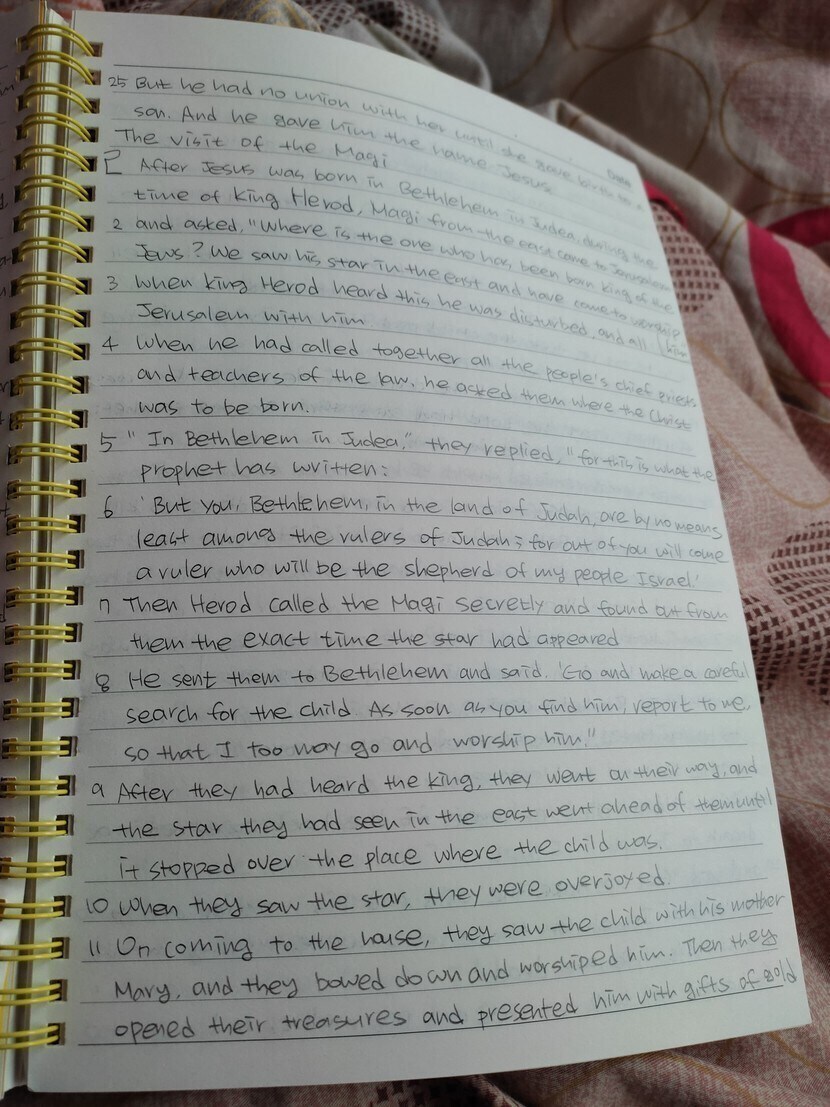 Date
25 But he had no union with her until she gave birth to a
son. And he gave him the name Jesus
The visit of the Magi
2 After Jesus was born in Bethlehem in Judea, during the
time of king Herod, Magi from the east came to Jerusalem
2 and asked, "Where is the one who has been born king of the
Jews? We saw his star in the east and have come to worship
him
3 When king Herod heard this he was disturbed, and all
Jerusalem with him
4 When he had called together all the people's chief priests
and teachers of the law, he asked them where the Christ
was to be born.
5 "In Bethlehem in Judea," they replied, "for this is what the
prophet has written:
6 'But you, Bethlehem, in the land of Judah, are by no means
least among the rulers of Judah; for out of you will come
a ruler who will be the shepherd of my people Israel'
7 Then Herod called the Magi secretly and found out from
them the exact time the star had appeared
8 He sent them to Bethlehem and said. 'Go and make a careful
search for the child As soon as you find him, report to me,
so that I too may go and worship him."
9 After they had heard the king, they went on their way, and
the star they had seen in the east went ahead of them until
it stopped over the place where the child was.
10 When they saw the star, they were overjoyed.
11 On coming to the house, they saw the child with his mother
Mary, and they bowed down and worshiped him. Then they
opened their treasures and presented him with gifts of gold